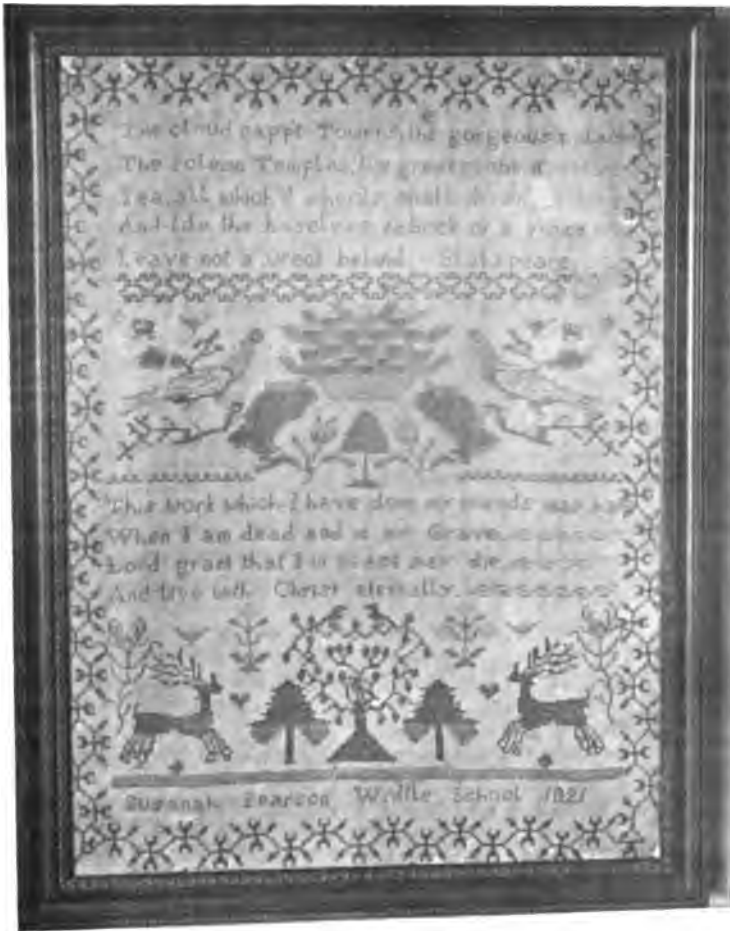 The cloud capp't Towers, the gorgeous
The solemn Temples, the great
Yea, all which it inherits shall
And like the baseless fabrick of a vision
Leave not a wreck behind - Shakspeare
This Work which I have done my friends may have
When I am dead and in my Grave
Lord grant that I in peace may die
And live with Christ eternally
Susanah Pearson School 1821